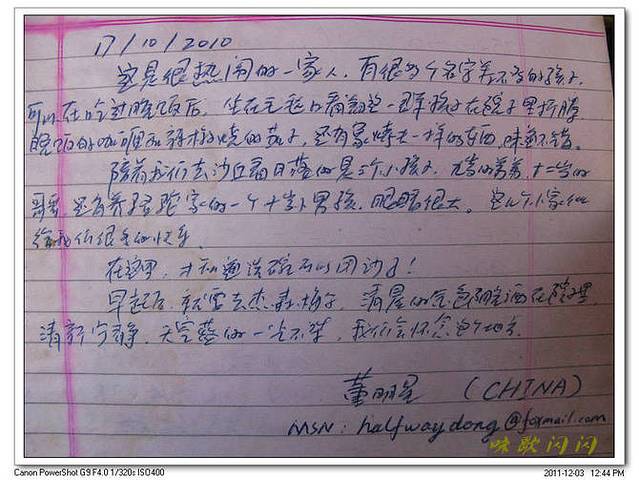 17/10/2010
这是很热闹的一家人，有很多个名字差不多的孩子，
可以在吃过晚饭后，坐在毛毯上看着这一群孩子在院子里折腾
晚饭的咖喱和锅烧的茄子，还有象烤大一样的东西，味道不错。
陪着我们去沙丘看日落的是三个小孩子，九岁的弟弟，十二岁的
哥哥，还有养骆驼家的一个十岁男孩，眼睛很大。这几个小家伙
给我们很多的快乐。
在这里，才知道洗碗可以用沙子！
早起后，就要去杰森梅尔，清晨的金色阳光洒在院子里
清新宁静，天空蓝的一尘不染，我们会怀念这个地方。
董明星 (CHINA)
MSN: halfwaydong@foxmail.com
味歌闪闪
Canon PowerShot G9 F4.0 1/320s ISO400
2011-12-03 12:44 PM